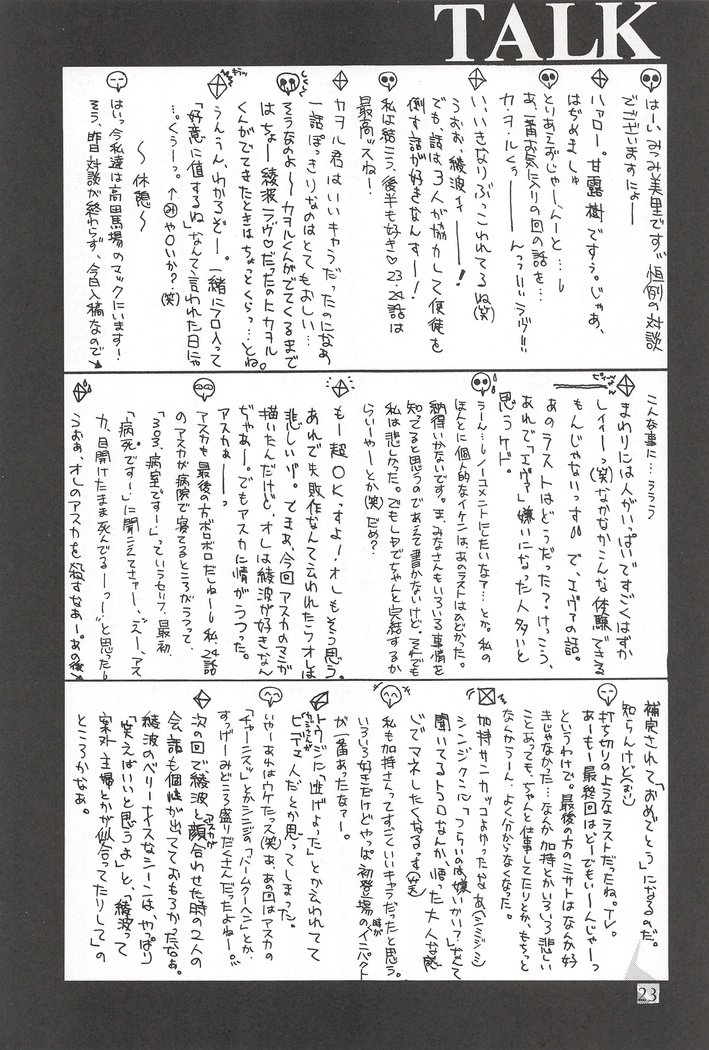 TALK
はーい、みつみ美里です♡恒例の対談
でございますにょー
ハァロー。甘露樹ですぅ。じゃあ、
はぢめましゅ
とりあえずじゃーんーと…し
あ、一番お気に入りの回の話を…
カヲルくぅーーんっっいいラヴ!!
い、いきなりぶっこわれてるね(笑)
うおぉ、綾波ィーー!
でも、話は3人が協力して使徒を
倒す話が好きなんすー!
私は結こう後半も好き♡23、24話は
最高ッスねー!
カヲル君はいいキャラだったのになぁ
一話ぽっきりなのはとてもおしい…
そうなのよ〜カヲルくんがでてくるまで
はちょー綾波ラヴ♡だったのトカヲル
くんがでてきたときはちょっとくらっ…とね。
うんうん、わかるぞー。一緒にフロ入って
「好意に値するね」なんて言われた日にゃ
…。くぅーっ。↑みや○いか?(笑)
〜休憩〜
はいっ今私達は高田馬場のマックにいます!
そう、昨日対談が終わらず、今日入稿なので
こんな事に…ううう
まわりには人がいっぱいですごくはずか
しィィーっ(笑)なかなかこんな体験できる
もんじゃないっす!! で、エヴァの話。
あのラストはどうだった?けっこう、
あれで「エヴァ」嫌いになった人多いと
思うケド。
うーん…しノーコメントにしたいなァ…とか。私の
ほんとに個人的なイケンは、あのラストはひどかった。
納得いかないです。ま、みなさんもいろいろ事情を
知ってると思うのであえて書かないけど。それでも
私は悲しかった。でもLDでちゃんと完結するか
らいーやーとか(笑)だめ?
もー超OKっすよ!オレもそう思う。
あれで失敗作なんて云われたらオレは
悲しいゾ。てまぁ、今回アスカのマンガ
描いたんだけど、オレは綾波が好きなん
ぢゃあー。でもアスカに情がうつった。
アスカぁーーっ
アスカも最後の方ボロボロだしねーし私、24話
のアスカが病院で寝てるところがうつって、
「303、病室ですー…」っていうセリフ、最初、
「病死ですー…」に聞こえてさァー、え゛ー、アス
カ、目開けたまま死んでるーっー゛と思ったし
うおぉ、オレのアスカを殺すなぁー。あの後
補完されて「おめでとう」になるのだ。
知らんけど(おい)
打ち切りのようなラストだったね。TV。
あーもー最終回はどーでもいーんじゃーっ
というわけで。最後の方のミサトはなんか好
きじゃなかった…なんか加持とかいろいろ悲しい
ことあっても、ちゃんと仕事してたりとか、もちっと
なんかうーん、よく分からなくなった。
加持サンカッコよかったなぁ
シンジクンに「つらいのは嫌いかい?」なんて
聞いてるトコロなんか、悟った大人な感
じでマネしたくなるっす(笑)
私も加持さんってすごくいいキャラだったと思う。
いろいろ好きだけどやっぱ初登場の時がインパクト
が一番あったなァー。
トウジに「逃げよった」とか云われてて
ヒデェ人だとか思ってしまった。
いやーあれはウケたっス(笑)あ、あの回はアスカの
「チャーンスッ」とかシンジの「バームクーヘン」とか、
すっげーみどころ盛りだくさんだったよねー。
次の回で綾波と顔合わせた時の2人の
会話も個性が出てておもろかったなぁ。
綾波のベリーナイスなシーンは、やっぱり
「笑えばいいと思うよ」と、「綾波って
案外主婦とかが似合ってたりして」の
ところかなぁ。
23